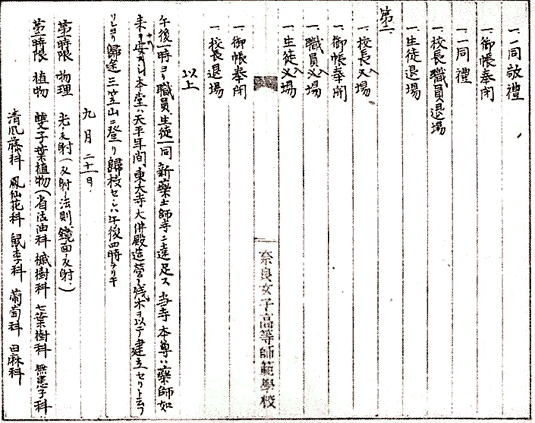 一、一同敬禮
一、御帳奉閉
一、一同禮
一、校長、職員退場
一、生徒退場
第二
一、校長入場
一、御帳奉開
一、職員入場
一、生徒入場
奈良女子高等師範學校
一、御帳奉閉
一、校長退場
以上
午後一時ヨリ職員生徒一同新藥師寺ニ遠足ス 当寺本尊ハ藥師如
来ヲ安ンジ本堂ハ天平年間東大寺大佛殿造營ノ残木ヲ以テ建立セリト云フ
歸途三笠山ニ登リ歸校セシハ午後四時ナリキ
九月二十一日
第一時限 物理 光ノ反射(反射ノ法則、鏡面反射)
第二時限 植物 雙子葉植物(省沽油科 槭樹科 七葉樹科 無患子科
清風藤科 鳳仙花科 鼠李科 葡萄科 田麻科